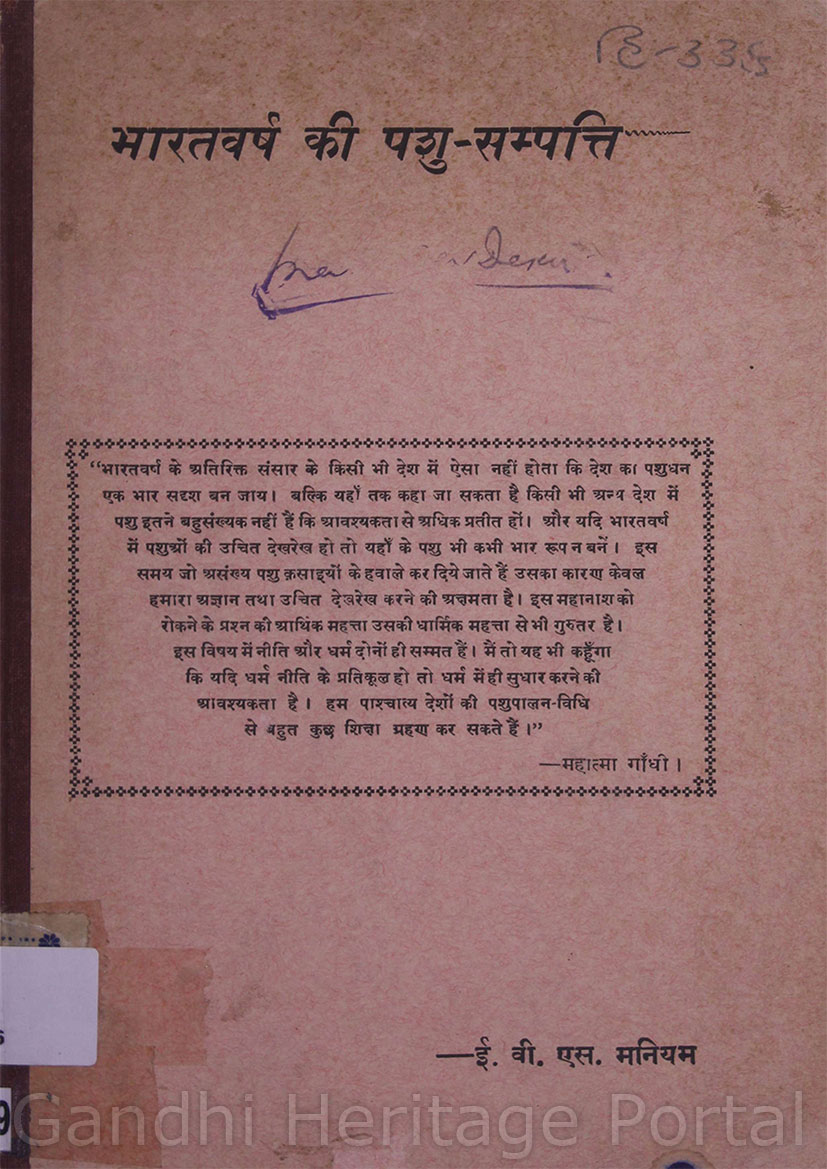 हि-33
भारतवर्ष की पशु-सम्पत्ति
"भारतवर्ष के अतिरिक्त संसार के किसी भी देश में ऐसा नहीं होता कि देश का पशुधन
एक भार सदृश बन जाय। बल्कि यहाँ तक कहा जा सकता है किसी भी अन्य देश में
पशु इतने बहुसंख्यक नहीं हैं कि आवश्यकता से अधिक प्रतीत हों। और यदि भारतवर्ष
में पशुओं की उचित देखरेख हो तो यहाँ के पशु भी कभी भार रूप न बनें। इस
समय जो असंख्य पशु क़साइयों के हवाले कर दिये जाते हैं उसका कारण केवल
हमारा अज्ञान तथा उचित देखरेख करने की अक्षमता है। इस महानाश को
रोकने के प्रश्न की आर्थिक महत्ता उसकी धार्मिक महत्ता से भी गुरुतर है।
इस विषय में नीति और धर्म दोनों ही सम्मत हैं। मैं तो यह भी कहूँगा
कि यदि धर्म नीति के प्रतिकूल हो तो धर्म में ही सुधार करने की
आवश्यकता है। हम पाश्चात्य देशों की पशुपालन-विधि
से बहुत कुछ शिक्षा ग्रहण कर सकते हैं।"
—महात्मा गाँधी।
—ई. वी. एस. मनियम
9
Gandhi Heritage Portal